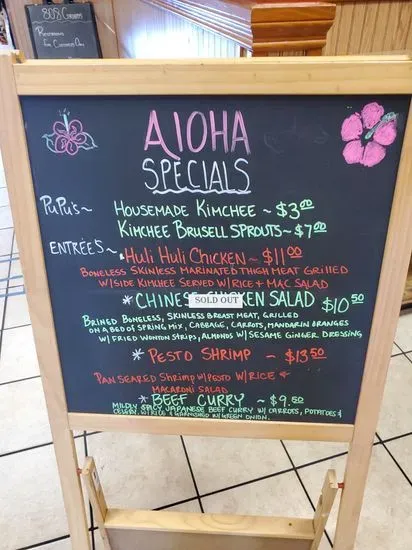 808 Grinds
ALOHA
SPECIALS
PuPu's ~ HOUSEMADE KIMCHEE ~ $3.00
KIMCHEE BRUSELL SPROUTS ~ $7.00
ENTRÉES ~ Huli Huli CHICKEN ~ $11.00
BONELESS SKINLESS MARINATED THIGH MEAT GRILLED
W/SIDE KIMCHEE SERVED W/RICE & MAC SALAD
* CHINES SOLD OUT KEN SALAD $10.50
BRINED BONELESS, SKINLESS BREAST MEAT, GRILLED
ON A BED OF SPRING MIX, CABBAGE, CARROTS, MANDARIN ORANGES
W/ FRIED WONTON STRIPS, ALMONDS W/ SESAME GINGER DRESSING
* PESTO SHRIMP ~ $13.50
PAN SEARED SHRIMP W/PESTO W/RICE &
MACARONI SALAD
* BEEF CURRY ~ $9.50
MILDLY SPICY JAPANESE BEEF CURRY W/ CARROTS, POTATOES &
CELERY. W/ RICE & GARNISHED W/GREEN ONION.